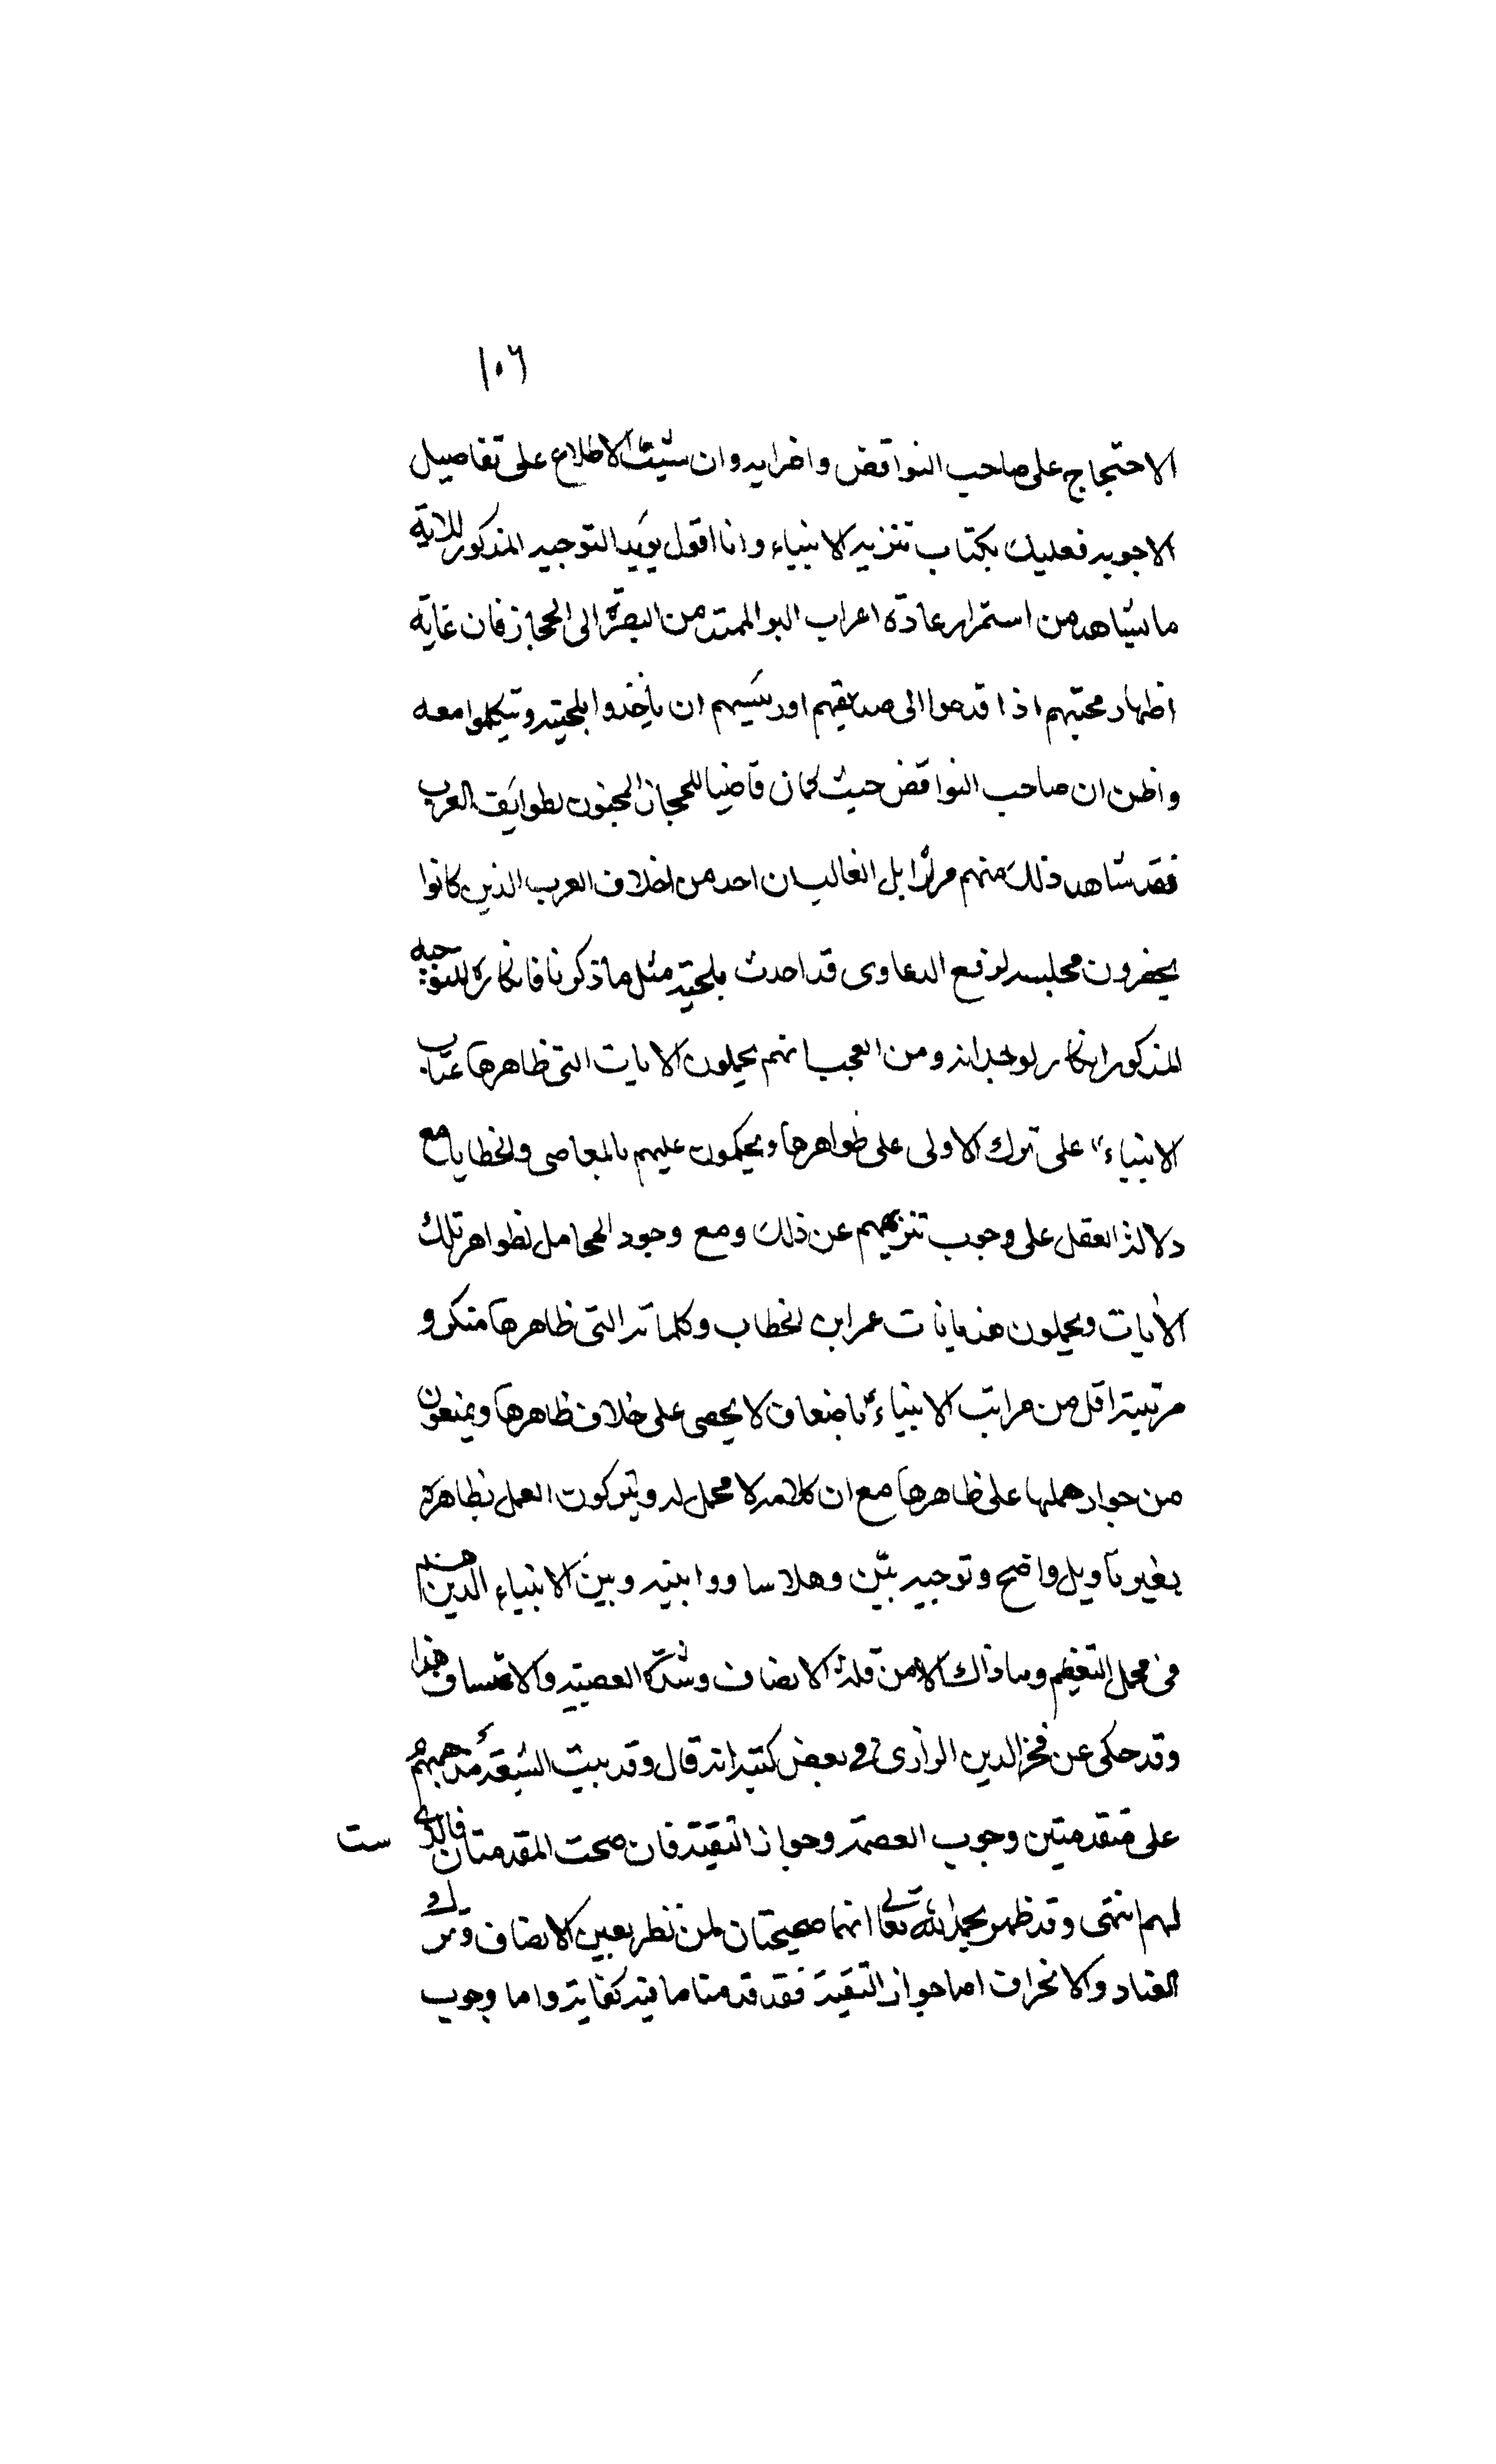 ١٠٦
الاحتجاج على صاحب النواقض واضرابه وان شئت الاطلاع على تفاصيل
الاجوبه فعليك بكتاب تنزيه الانبياء وانا اقول يؤيد التوجيه المذكور للاية
ما يشاهد من استمرار عادة اعراب البوالممتد من البصرة الى الحجاز فان غاية
اظهار محبتهم اذا قدموا الى صديقهم او رئيسهم ان يأخذوا بلحيته ويتكلموا معه
واظن ان صاحب النواقض حيث كان قاضيا للحجاز المحفوف بطوايف العرب
فقد شاهد ذلك منهم مرارا بل الغالب ان احد من اخلاف العرب الذين كانوا
يحضرون مجلسه لرفع الدعاوى قد احدث بلحيته مثل ما ذكرنا فانكاره للتوجيه
المذكور انكار لوجدانه ومن العجب انهم يحملون الايات التى ظاهرها عتاب
الانبياء على ترك الاولى على ظواهرها ويحكمون عليهم بالمعاصى والخطايا مع
دلالة العقل على وجوب تنزيههم عن ذلك ومع وجود المحامل لظواهر تلك
الايات ويحملون هذيانات عمر ابن الخطاب وكلماته التى ظاهرها منكر و
مرتبته اقل من مراتب الانبياء باضعاف لا يحصى على خلاف ظاهرها ويمنعون
من جواز حملها على ظاهرها مع ان كلامه لا محمل له ويتركون العمل بظاهره
بغير تاويل واضح وتوجيه بيّن وهلا ساووا بينه وبين الانبياء الذين هم
فى محل التعظيم وما ذاك الا من قلة الانصاف وشدّة العصبيه والاعتساف هذا
وقد حكى عن فخر الدين الرازى فى بعض كتبه انه قال وقد بنيت الشيعة مذهبهم
على مقدمتين وجوب العصمة وجواز التقية فان صحت المقدمتان فالدست
لهم انتهى وقد ظهر بحمد الله تعالى انهما صحيحتان لمن نظر بعين الانصاف وترك
العناد والانحراف اما جواز التقية فقد قدمنا ما فيه كفاية واما وجوب